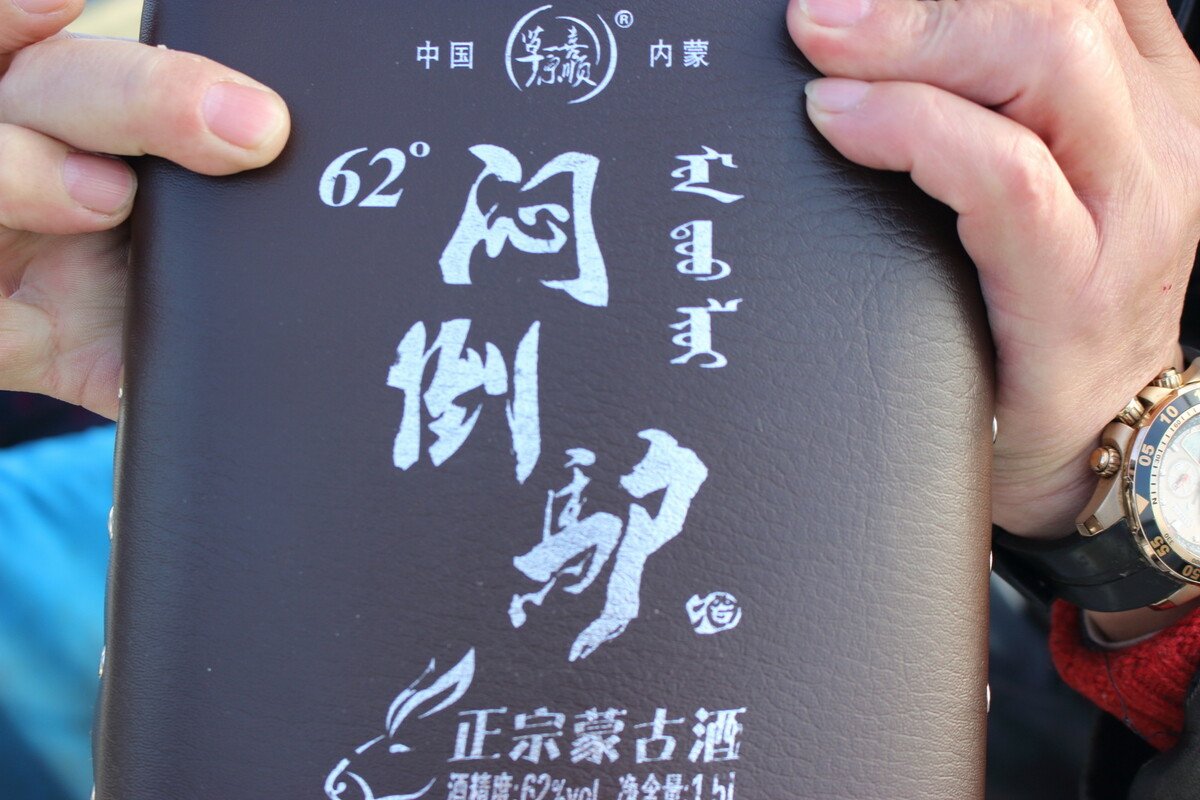 中国 草原喜顺 ® 内蒙
62°
闷
倒
驴
正宗蒙古酒
酒精度:62%vol 净含量:1.5L
10
05
55
50